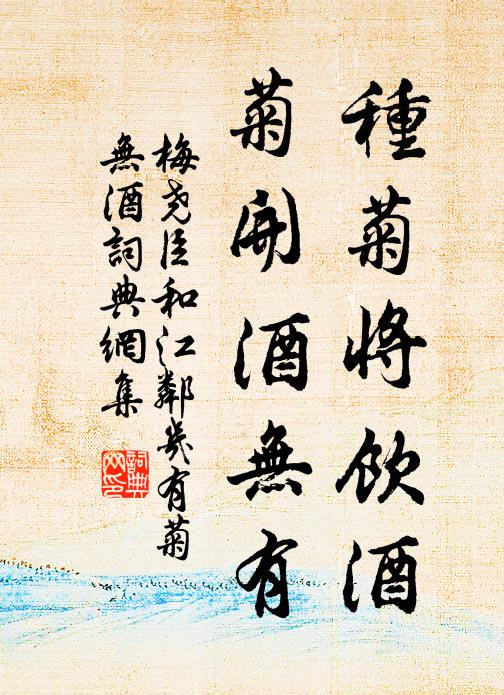 種菊將飲酒
菊開酒無有
梅堯臣和江鄰幾有菊
無酒詞典網集
詞典
网印